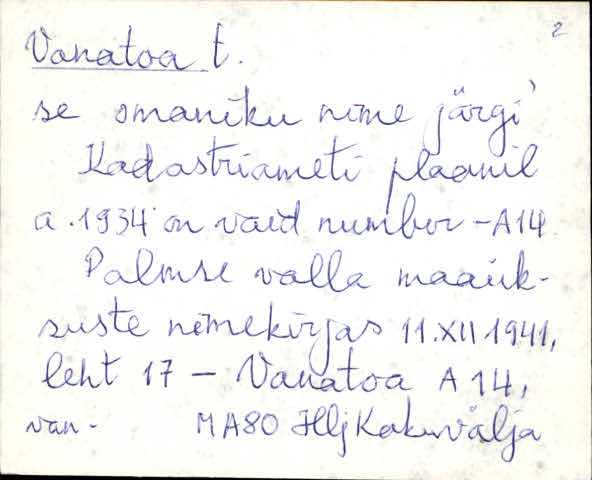 2
Vanatoa t.
se omaniku nime järgi
Kadastriameti plaanil
a. 1934 on vaid number - A14
Palmse valla maaük-
suste nimekirjas 11.XII 1941,
leht 17 - Vanatoa A 14,
van- MA80 Hlj Kakuvälja